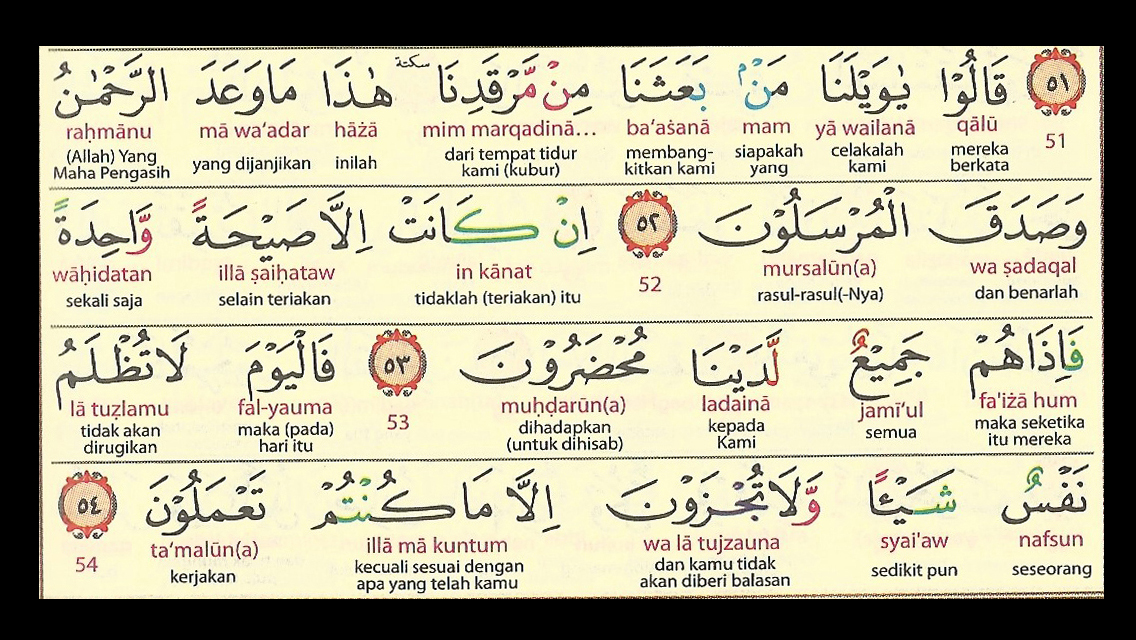 ٥١ قَالُوْا يٰوَيْلَنَا مَنْۢ بَعَثَنَا مِنْ مَّرْقَدِنَا ۜسكتة هٰذَا مَا وَعَدَ الرَّحْمٰنُ
51 qālū yā wailanā mam ba‘aṡanā mim marqadinā... hāżā mā wa‘adar raḥmānu
mereka berkata celakalah kami siapakah yang membang-kitkan kami dari tempat tidur kami (kubur) inilah yang dijanjikan (Allah) Yang Maha Pengasih
وَصَدَقَ الْمُرْسَلُوْنَ ٥٢ اِنْ كَانَتْ اِلَّا صَيْحَةً وَّاحِدَةً
wa ṣadaqal mursalūn(a) 52 in kānat illā ṣaihataw wāḥidatan
dan benarlah rasul-rasul(-Nya) tidaklah (teriakan) itu selain teriakan sekali saja
فَاِذَا هُمْ جَمِيْعٌ لَّدَيْنَا مُحْضَرُوْنَ ٥٣ فَالْيَوْمَ لَا تُظْلَمُ
fa'iżā hum jamī‘ul ladainā muḥḍarūn(a) 53 fal-yauma lā tuẓlamu
maka seketika itu mereka semua kepada Kami dihadapkan (untuk dihisab) maka (pada) hari itu tidak akan dirugikan
نَفْسٌ شَيْـًٔا وَّلَا تُجْزَوْنَ اِلَّا مَا كُنْتُمْ تَعْمَلُوْنَ ٥٤
nafsun syai'aw wa lā tujzauna illā mā kuntum ta‘malūn(a) 54
seseorang sedikit pun dan kamu tidak akan diberi balasan kecuali sesuai dengan apa yang telah kamu kerjakan